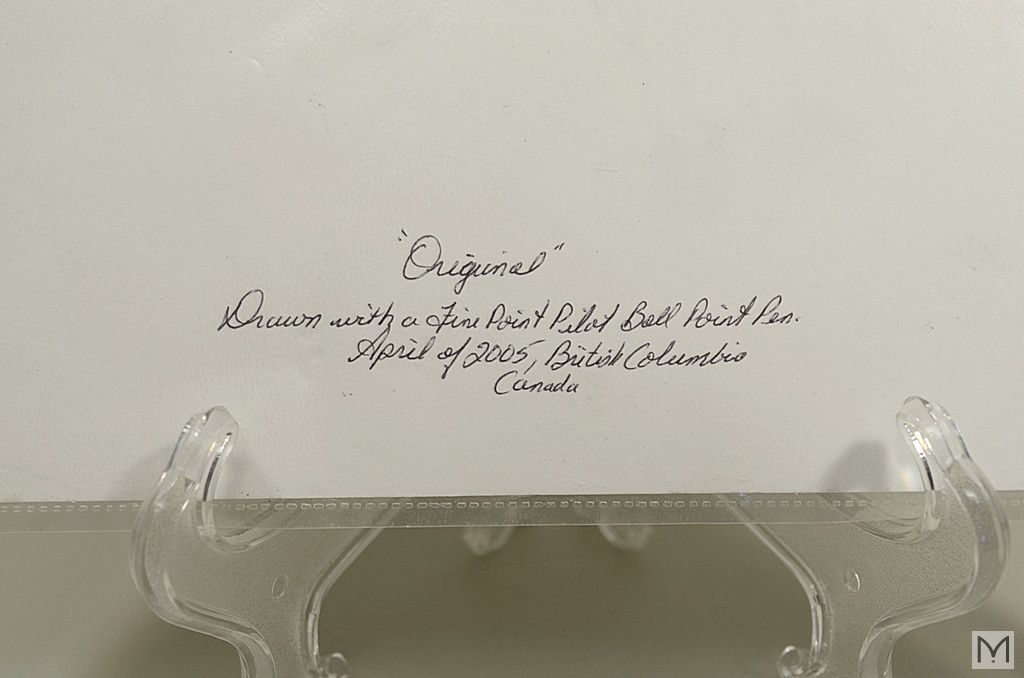 "Original"
Drawn with a Fine Point Pilot Ball Point Pen.
April of 2005, British Columbia
Canada
M